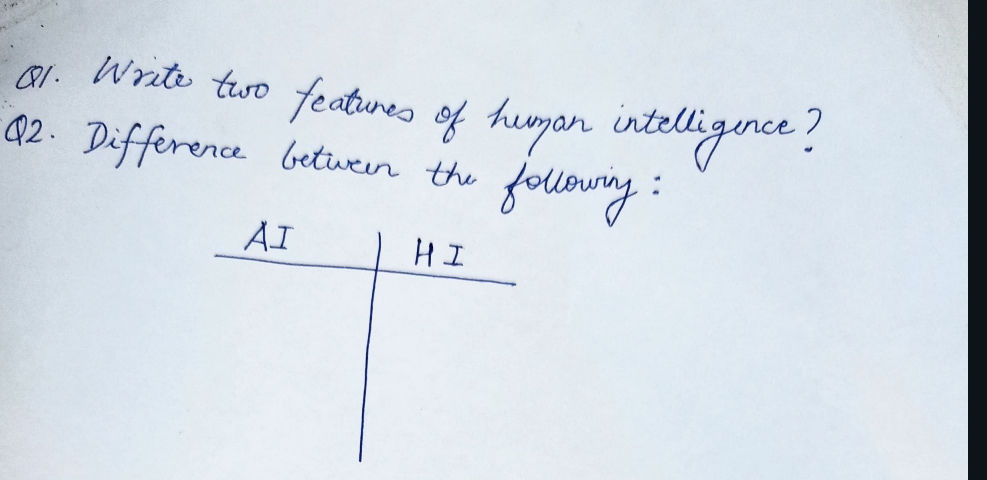 Q1. Write two features of human intelligence?
Q2. Difference between the following:
AI HI